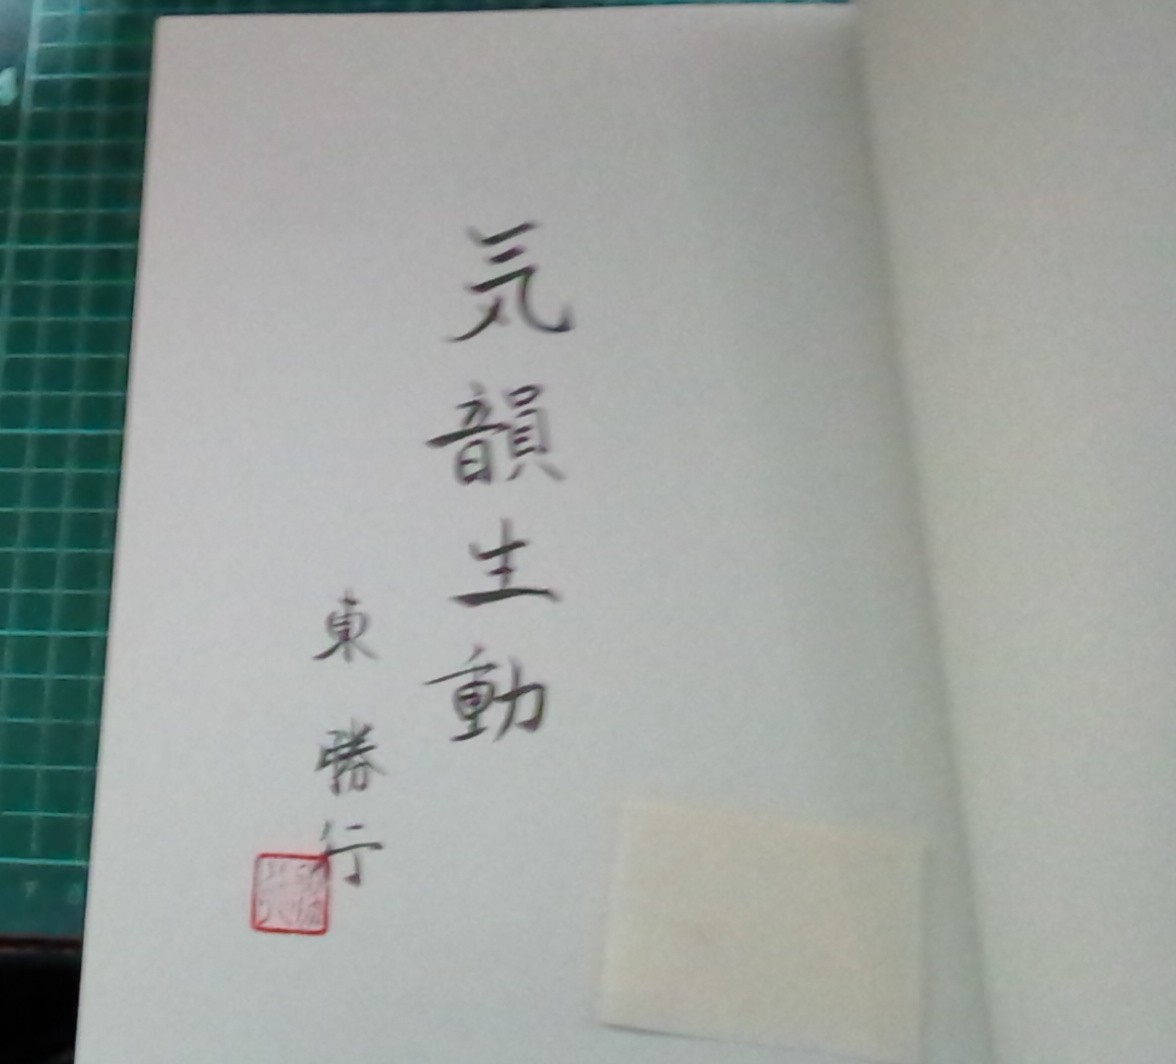 気韻生動
東勝行